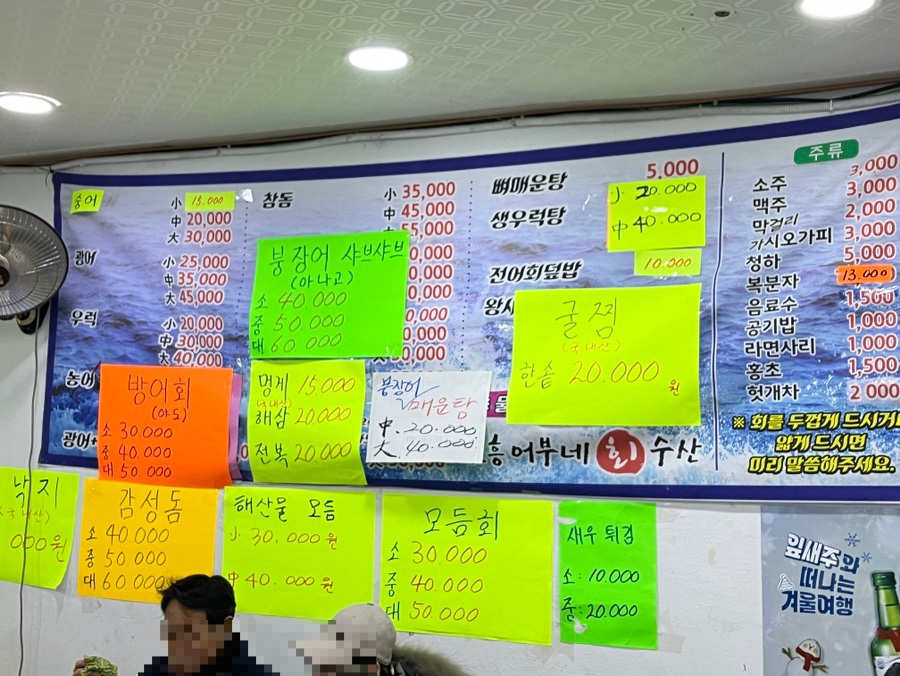 숭어
小 15.000
中 20,000
大 30,000
광어
小 25,000
中 35,000
大 45,000
우럭
小 20,000
中 30,000
大 40,000
농어
광어+
참돔
小 35,000
中 45,000
大 55,000
붕장어 샤브샤브
(아나고)
소 40.000
중 50.000
대 60.000
뼈매운탕 5,000
생우럭탕
小 20.000
中 40.000
전어회덮밥 10.000
굴찜
(국내산)
한솥 20.000원
주류
3,000
소주 3,000
맥주 2,000
막걸리 3,000
가시오가피 5,000
청하 13.000
복분자 1,500
음료수 1,000
공기밥 1,000
라면사리 1,500
홍초 2 000
헛개차
※ 회를 두껍게 드시거나
얇게 드시면
미리 말씀해주세요.
방어회
(야도)
소 30.000
중 40.000
대 50.000
멍게 15.000
해삼 20,000
전복 20.000
붕장어
매운탕
中. 20.000
大. 40.000
흥어부네 회 수산
낙지
000원
감성돔
소 40.000
중 50.000
대 60.000
해산물 모듬
小 30.000원
中 40.000원
모듬회
소 30.000
중 40.000
대 50.000
새우 튀김
소: 10.000
중: 20.000
잎새주와
떠나는
겨울여행